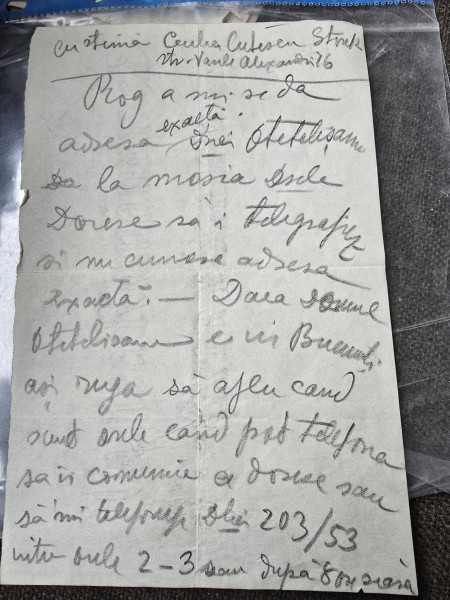 Cecilia Cuțescu Storck
str. Vasile Alexandri 16
Rog a mi se da
exactă.
adresa Dnei Otetelișanu
la moșia Dsale
Doresc să-i telegrafiez
și nu cunosc adresa
exactă. — Daca
Otetelișanu e in București
aș ruga să aflu cand
sunt orele cand pot telefona
sa-i comunic ce doresc sau
să-mi telefoneze Dnei 203/53
intre orele 2-3 sau după 8 ore seara